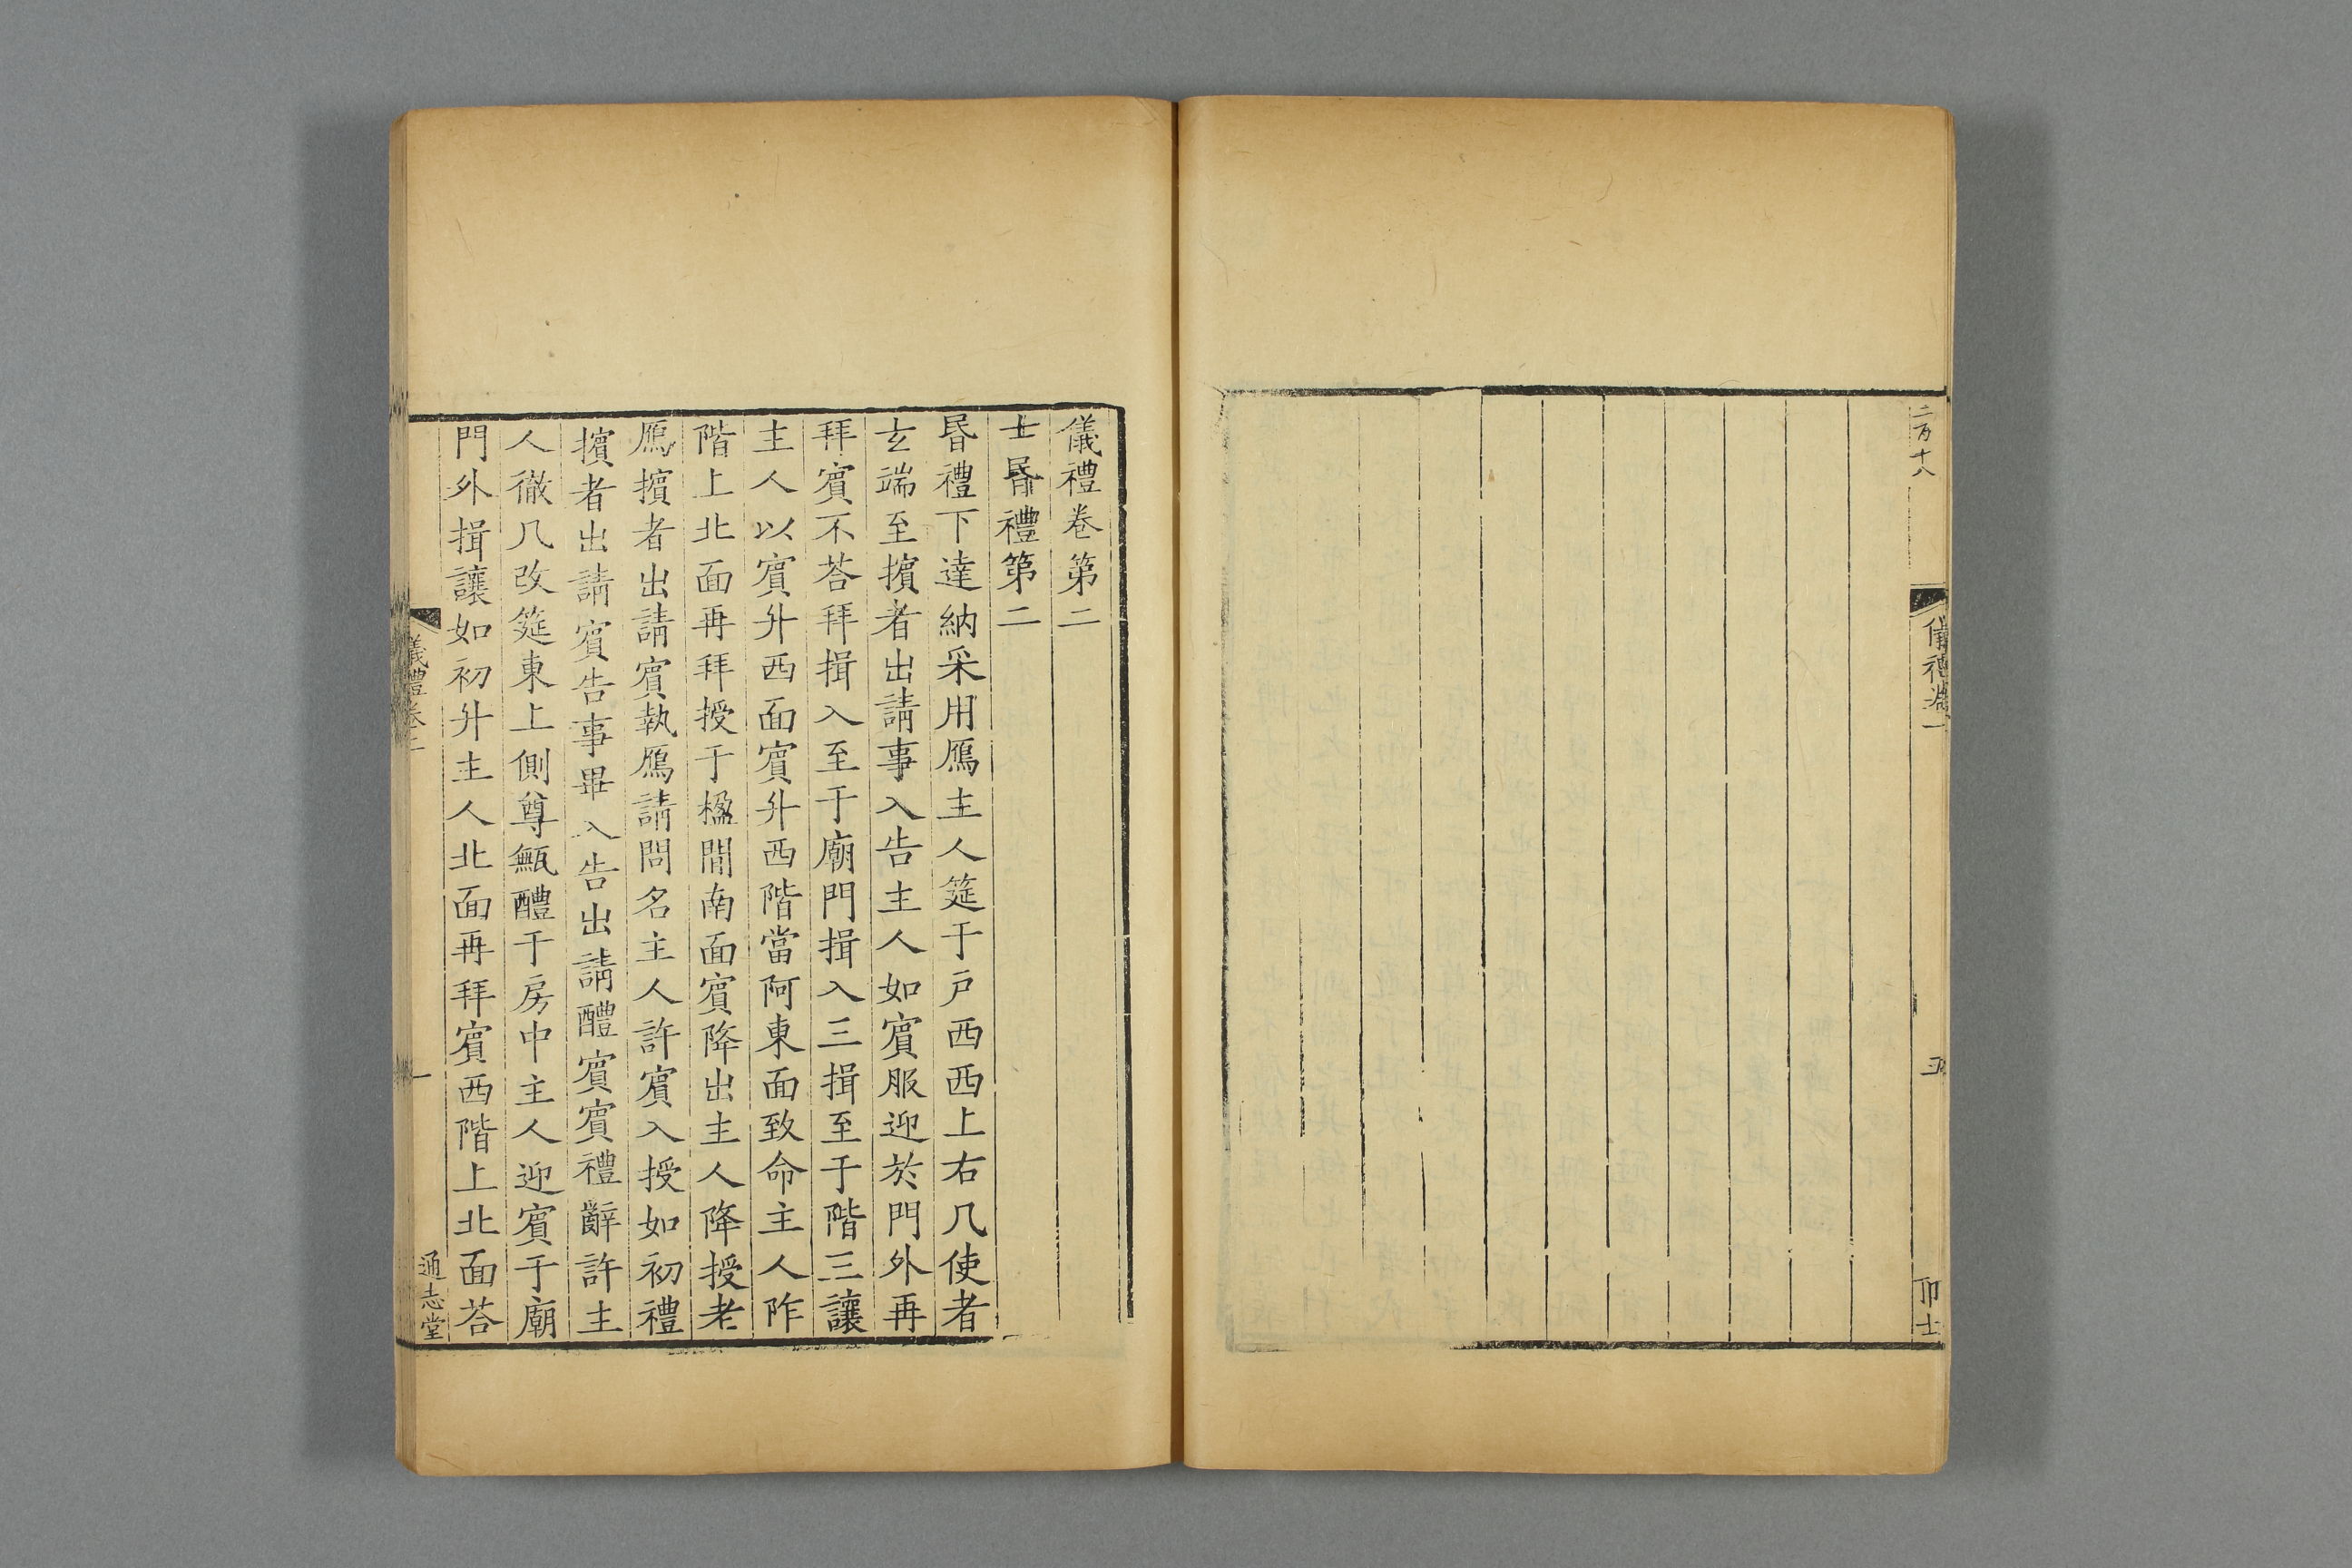 二百十八
儀禮卷一
五
儀禮卷第二
士昬禮第二
昬禮下達納采用鴈主人筵于戶西西上右几使者
玄端至擯者出請事入告主人如賔服迎於門外再
拜賔不荅拜揖入至于廟門揖入三揖至于階三讓
主人以賔升西面賔升西階當阿東面致命主人阼
階上北面再拜授于楹閒南面賔降出主人降授老
鴈擯者出請賔執鴈請問名主人許賔入授如初禮
擯者出請賔告事畢入告出請醴賔賔禮辭許主
人徹几改筵東上側尊甒醴于房中主人迎賔于廟
門外揖讓如初升主人北面再拜賔西階上北面荅
儀禮卷二
一
通志堂